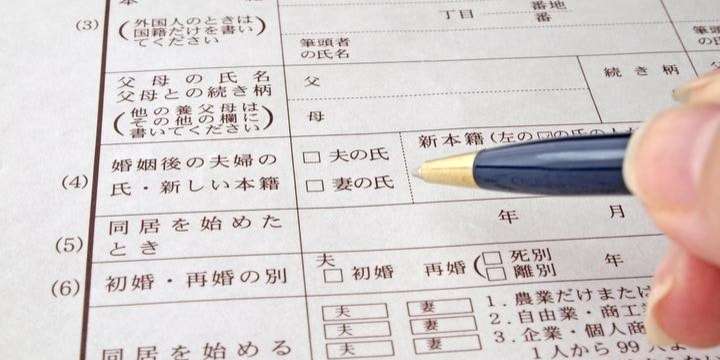 本
丁目
番地
番
(3)
(外国人のときは
国籍だけを書い
てください)
筆頭者
の氏名
筆頭
の氏
父母の氏名
父母との続き柄
(他の養父母は
その他の欄に
書いてください)
父
続き柄
父
母
(4)
婚姻後の夫婦の
氏・新しい本籍
□ 夫の氏
□ 妻の氏
新本籍(左の□の氏の人
(5)
同居を始めた
とき
年 月
(6)
初婚・再婚の別
夫
□ 初婚 再婚(□ 死別
□ 離別
年
同居を始める
夫 妻
夫 妻
夫 妻
1. 農業だけまたは
2. 自由業・商工
3. 企業・個人商
1人から99人